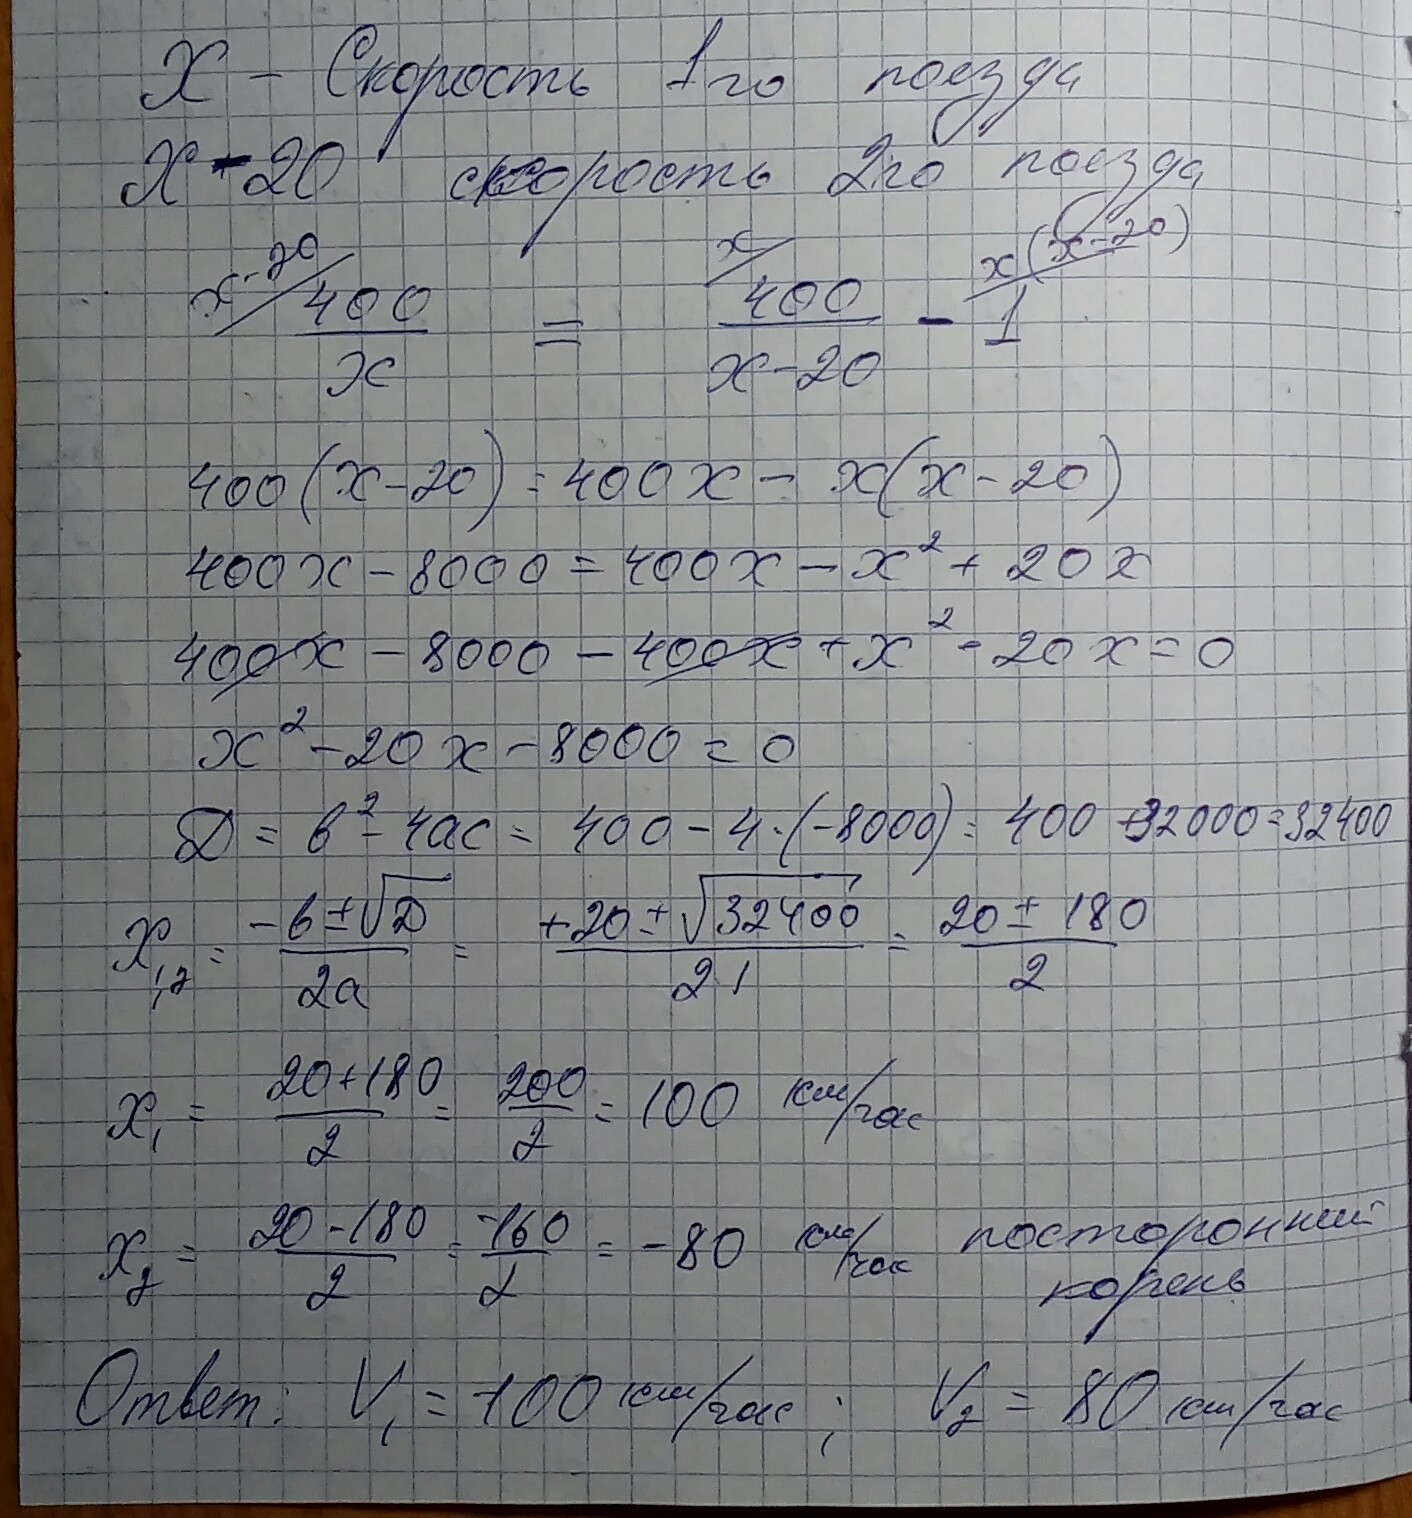 X - Скорость 1го поезда
X - 20 скорость 2го поезда
x-20/ 400/x = x/ 400/(x-20) - x(x-20)/ 1
400(x-20) = 400x - x(x-20)
400x - 8000 = 400x - x² + 20x
400x - 8000 - 400x + x² - 20x = 0
x² - 20x - 8000 = 0
D = b² - 4ac = 400 - 4·(-8000) = 400 + 32000 = 32400
X₁,₂ = (-b ± √D)/2a = (+20 ± √32400)/2·1 = (20 ± 180)/2
X₁ = (20+180)/2 = 200/2 = 100 км/час
X₂ = (20-180)/2 = -160/2 = -80 км/час посторонний
корень
Ответ: V₁ = 100 км/час; V₂ = 80 км/час